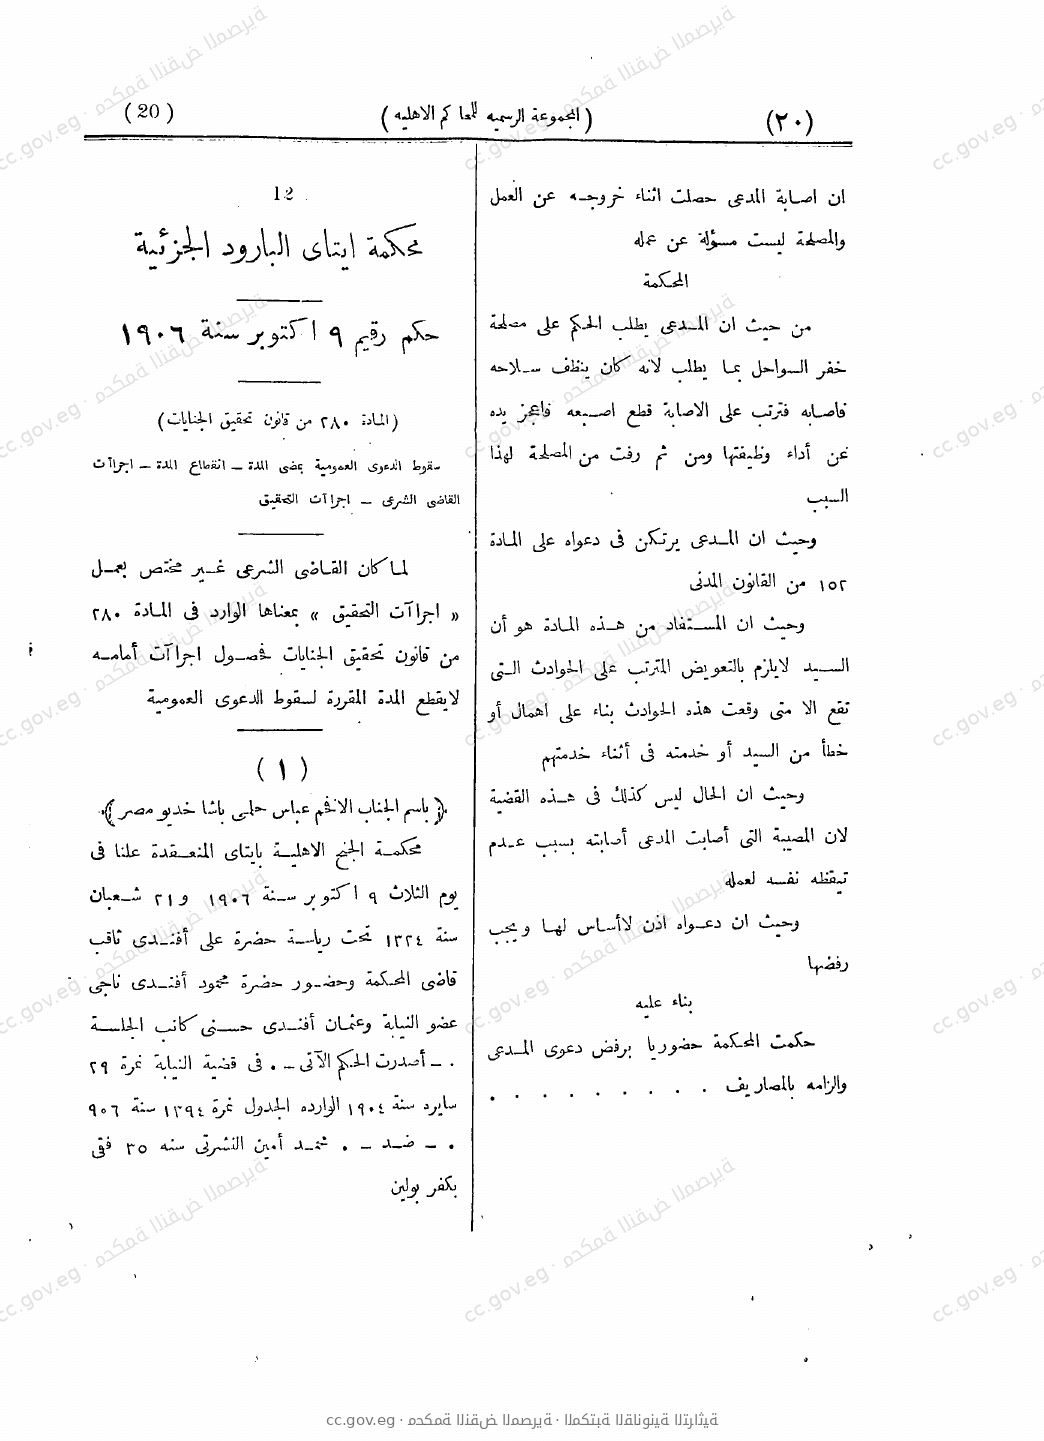 (٢٠)
(المجموعة الرسميه للمحاكم الاهليه)
(20)
ان اصابة المدعى حصلت اثناء خروجه عن العمل
والمصلحة ليست مسؤلة عن عمله
المحكمة
من حيث ان المدعى يطلب الحكم على مصلحة
خفر السواحل بما يطلب لانه كان ينظف سلاحه
فاصابه فترتب على الاصابة قطع اصبعه فاعجز يده
عن أداء وظيفتها ومن ثم رفت من المصلحة لهذا
السبب
وحيث ان المدعى يرتكن فى دعواه على المادة
١٥٢ من القانون المدنى
وحيث ان المستفاد من هذه المادة هو أن
السيد لايلزم بالتعويض المترتب على الحوادث التى
تقع الا متى وقعت هذه الحوادث بناء على اهمال أو
خطأ من السيد أو خدمته فى أثناء خدمتهم
وحيث ان الحال ليس كذلك فى هذه القضية
لان المصيبة التى أصابت المدعى أصابته بسبب عدم
تيقظه نفسه لعمله
وحيث ان دعواه اذن لاأساس لها ويجب
رفضها
بناء عليه
حكمت المحكمة حضوريا برفض دعوى المدعى
والزامه بالمصاريف . . . . . . . . .
12
محكمة ايتاى البارود الجزئية
حكم رقيم ٩ اكتوبر سنة ١٩٠٦
(المادة ٢٨٠ من قانون تحقيق الجنايات)
سقوط الدعوى العمومية بمضى المدة – انقطاع المدة – اجراآت
القاضى الشرعى – اجراآت التحقيق
لما كان القاضى الشرعى غير مختص بعمل
« اجراآت التحقيق » بمعناها الوارد فى المادة ٢٨٠
من قانون تحقيق الجنايات فحصول اجراآت أمامه
لايقطع المدة المقررة لسقوط الدعوى العمومية
(١)
﴿باسم الجناب الافخم عباس حلمى باشا خديو مصر﴾
محكمة الجنح الاهلية بايتاى المنعقدة علنا فى
يوم الثلاث ٩ اكتوبر سنة ١٩٠٦ و٢١ شعبان
سنة ١٣٢٤ تحت رياسة حضرة على أفندى ثاقب
قاضى المحكمة وحضور حضرة محمود أفندى ناجى
عضو النيابة وعثمان أفندى حسنى كاتب الجلسة
. – أصدرت الحكم الآتى – . فى قضية النيابة نمرة ٢٩
سايره سنة ١٩٠٤ الوارده الجدول نمرة ١٣٩٤ سنة ٩٠٦
. – ضد – . محمد أمين النشرتى سنه ٣٥ فقى
بكفر بولين
cc.gov.eg · محكمة النقض المصرية · المكتبة القانونية التراثية